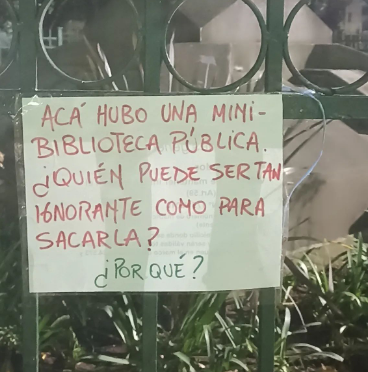 ACÁ HUBO UNA MINI-
BIBLIOTECA PÚBLICA.
¿QUIÉN PUEDE SER TAN
IGNORANTE COMO PARA
SACARLA?
¿POR QUÉ?